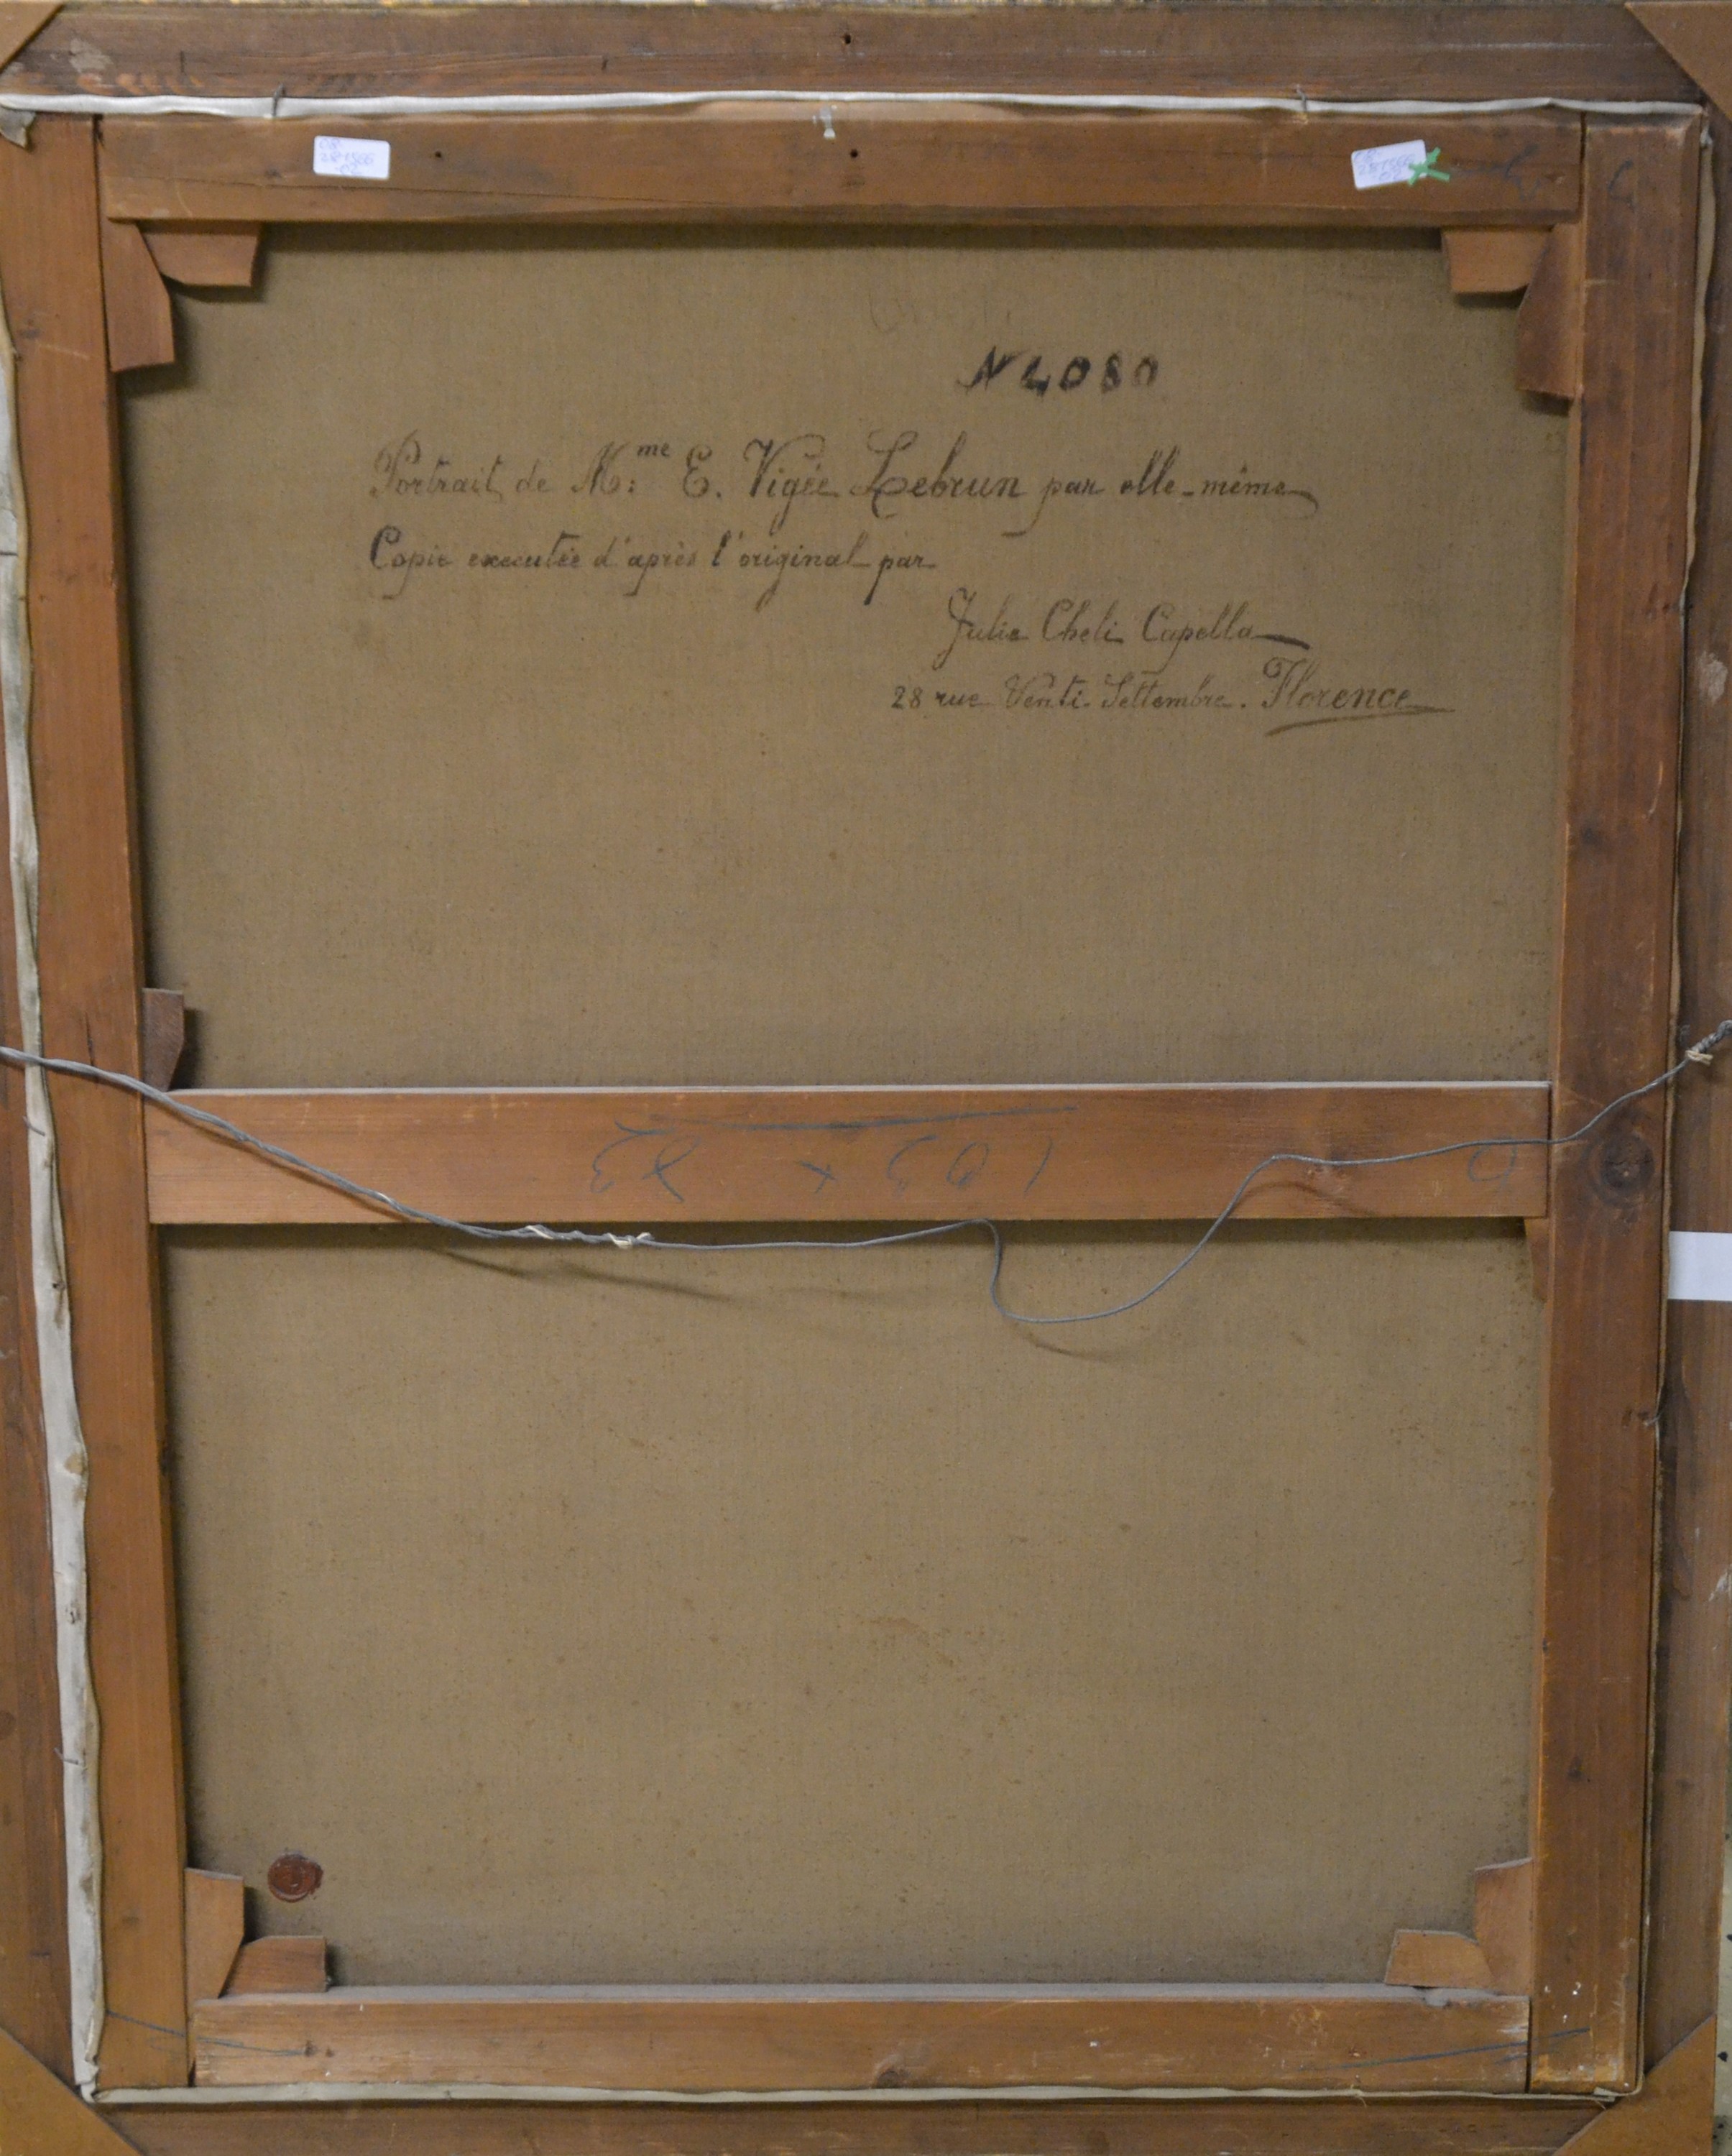 N 4080
Portrait de M:me E. Vigée Lebrun par elle-même
Copie executée d'après l'original par
Julie Cheli Capella
28 rue Venti Settembre. Florence
103 x 83